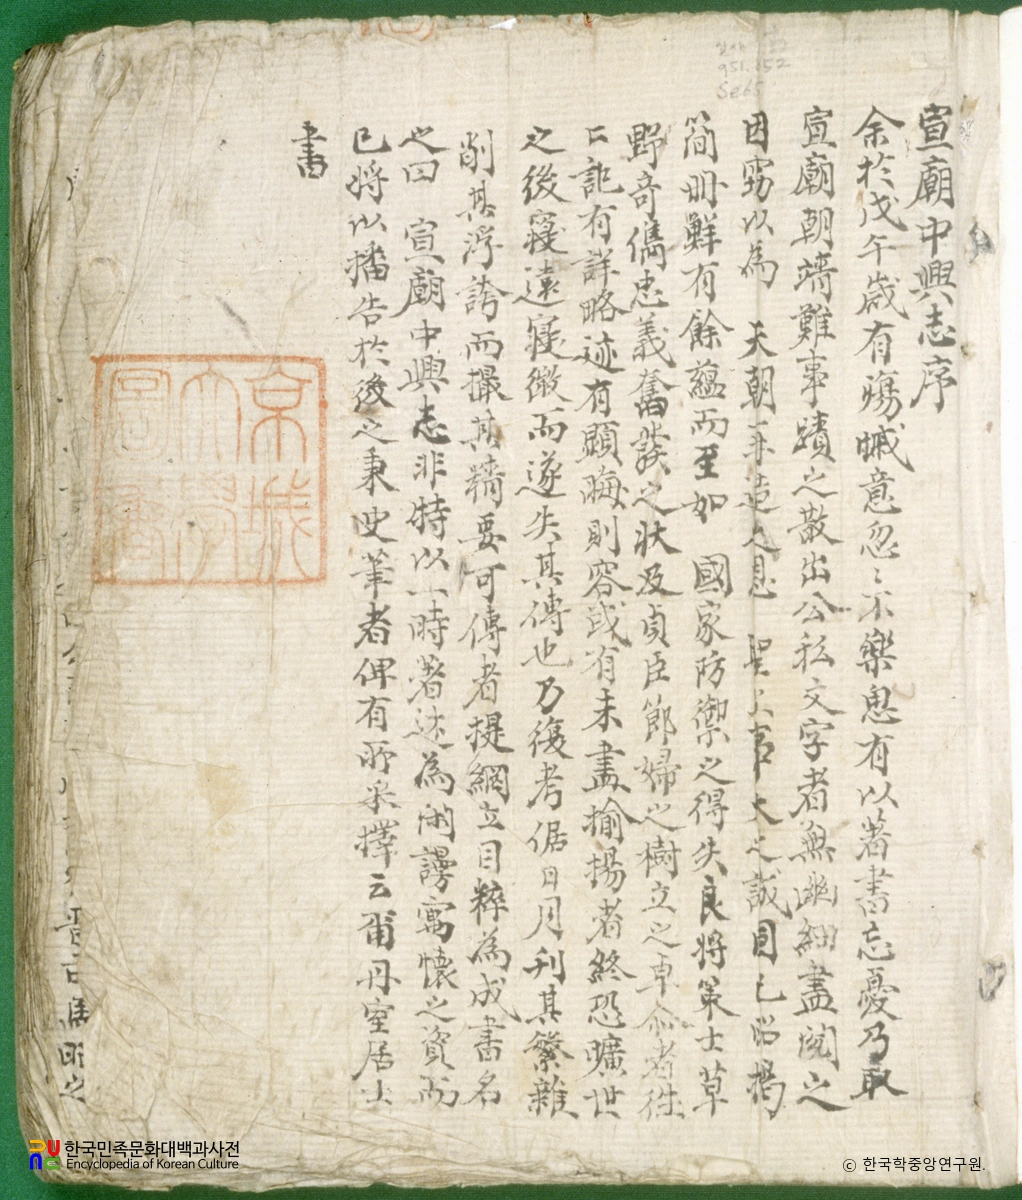 宣廟中興志序
余於戊午歲有殤慽意忽〻不樂思有以著書忘憂乃取
宣廟朝靖難事蹟之散出公私文字者無幽細盡閱之
因竊以為 天朝再造之恩 聖上事大之誠固已昭揭
簡冊鮮有餘蘊而至如 國家防禦之得失良將策士草
野奇儁忠義奮發之狀及貞臣節婦之樹立之卓爾者往
〻記有詳略迹有顯晦則容或有未盡揄揚者終恐曠世
之後寢遠寢微而遂失其傳也乃復考倨日月刋其繁雜
削其浮誇而撮其精要可傳者提綱立目粹為成書名
之曰 宣廟中興志非特以一時著述為閑謾寓懷之資而
已將以播告於後之秉史筆者俾有所采擇云爾丹室居士
書
京城
大學
圖書
951.052
Se65
한국민족문화대백과사전
Encyclopedia of Korean Culture
ⓒ 한국학중앙연구원.